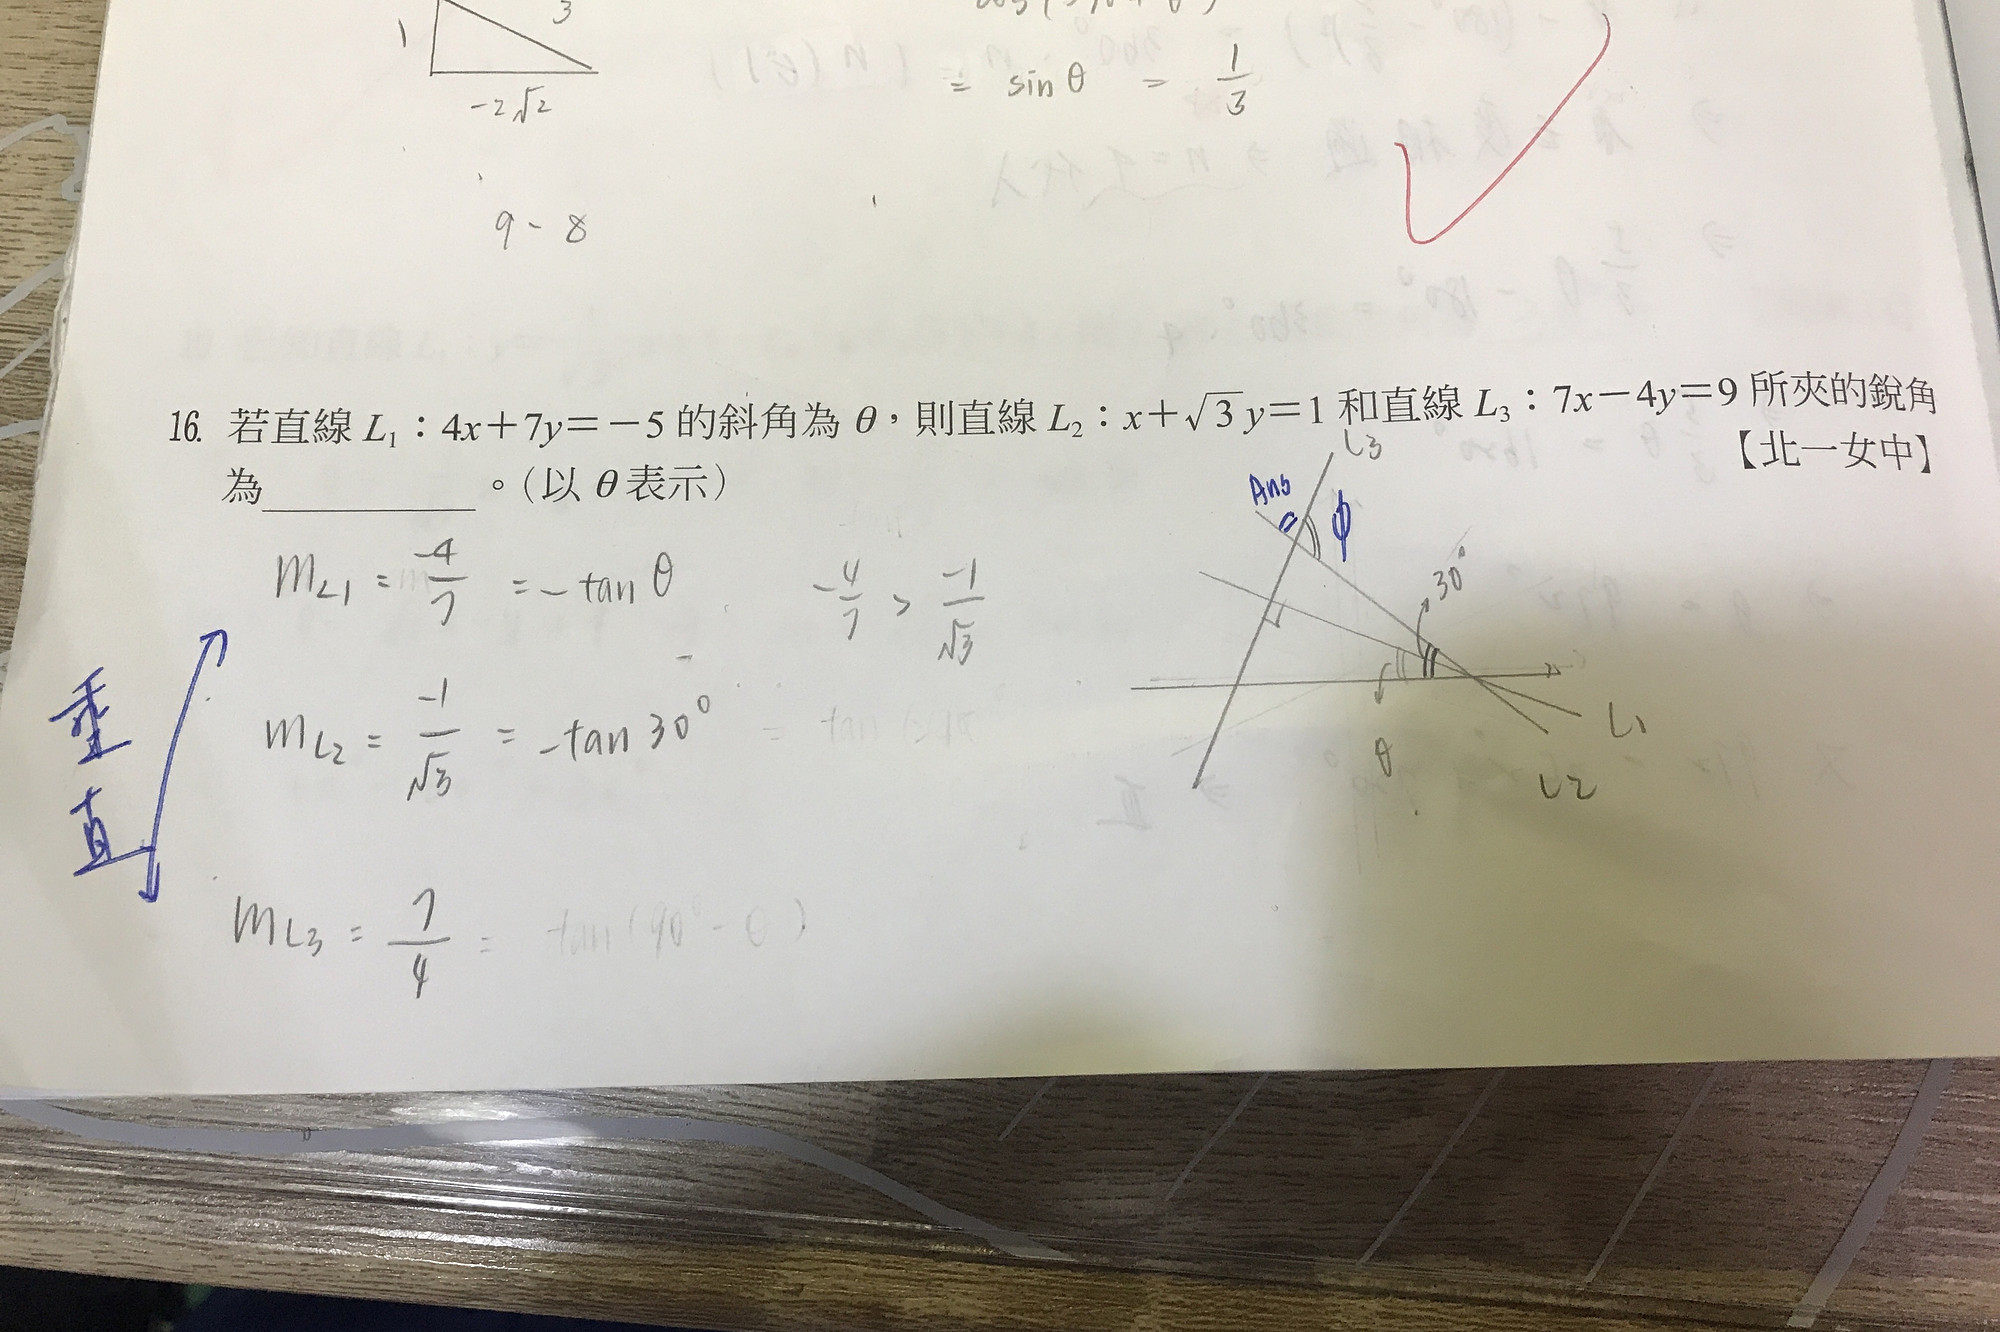 1
3
-2√2
= sin θ = 1/3
9 - 8
16. 若直線 L₁：4x+7y=-5 的斜角為 θ，則直線 L₂：x+√3y=1 和直線 L₃：7x-4y=9 所夾的銳角
為＿＿＿＿＿＿。（以 θ 表示）
【北一女中】
m_L1 = -4/7 = -tan θ
-4/7 > -1/√3
m_L2 = -1/√3 = -tan 30°
垂直
m_L3 = 7/4 = tan(90° - θ)
L3
Ans
ϕ
30°
θ
L1
L2